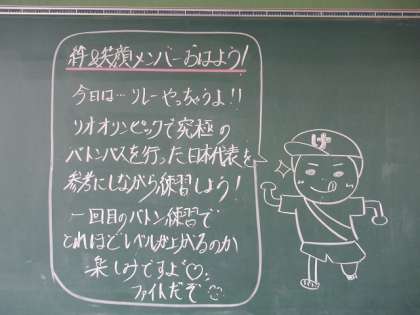 絆&笑顔メンバーおはよう!
今日は…リレーやっちゃうよ!!
リオオリンピックで究極の
バトンパスを行った日本代表を
参考にしながら練習しよう!
一回目のバトン練習で
これほどレベルが上がるのか
楽しみですよ♡
ファイトだぞ
け